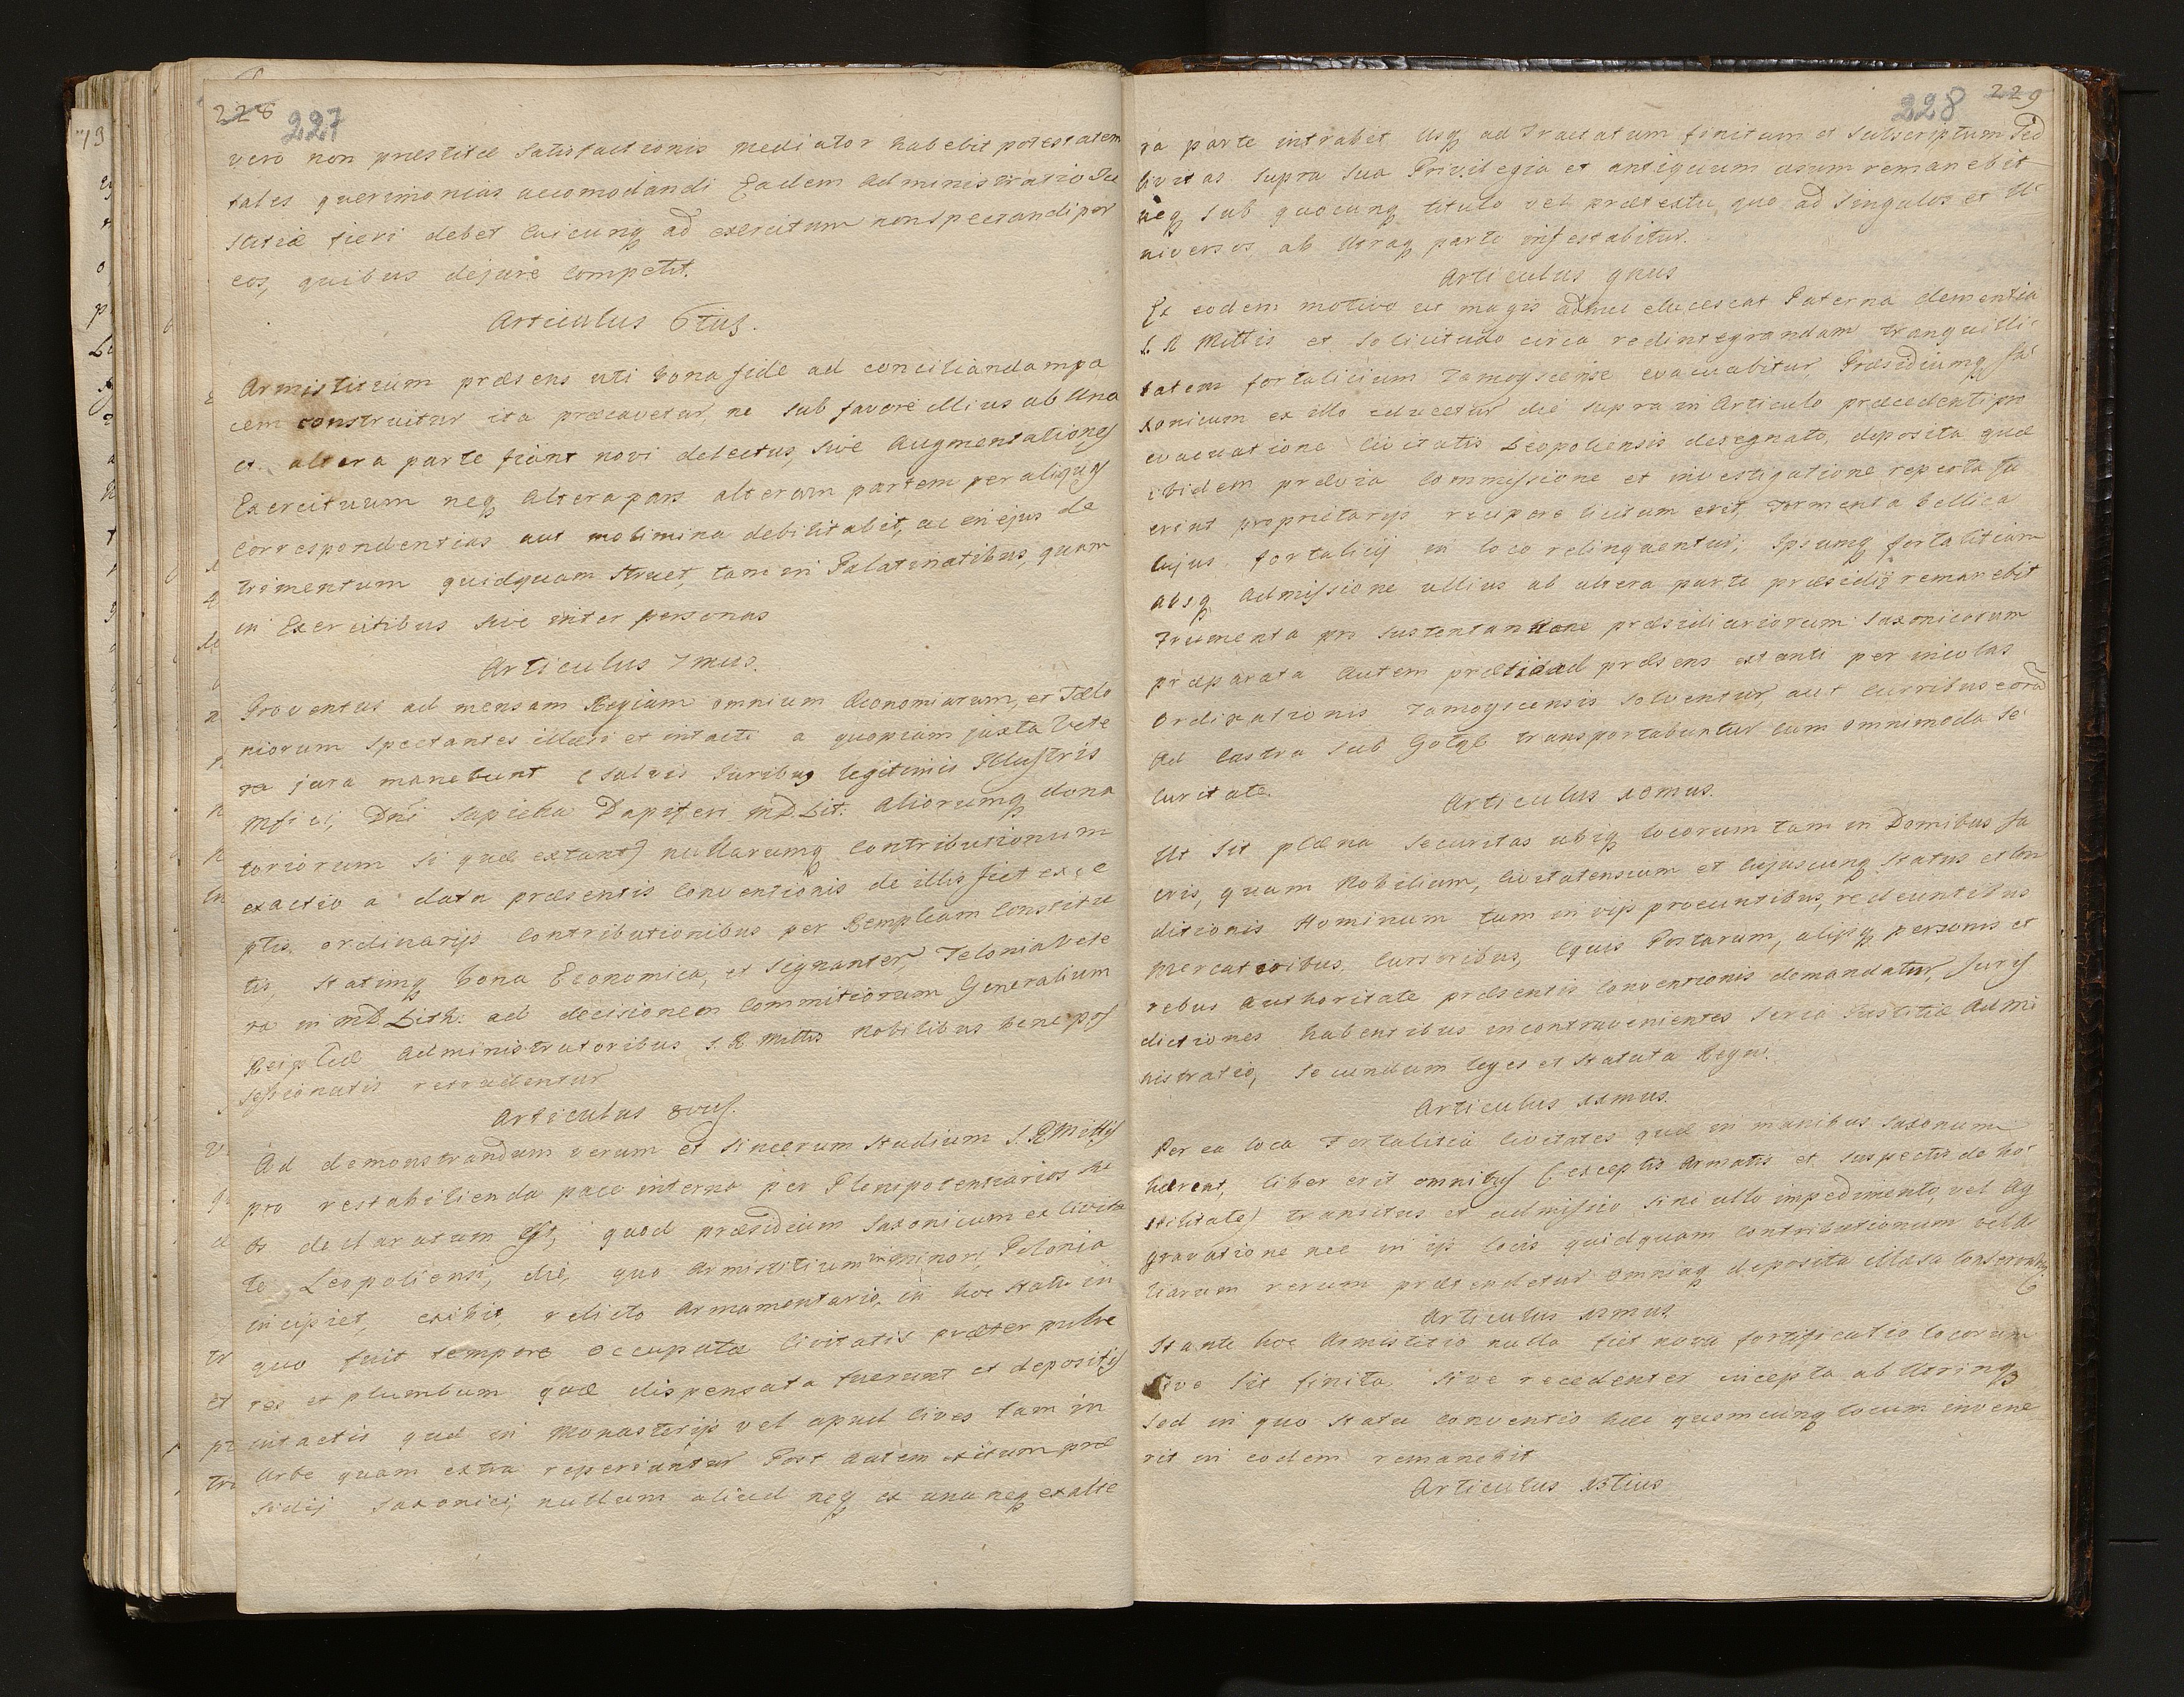 228 227
vero non præstitæ satisfactionis mediator habebit potestatem
tales querimonias accomodandi Eadem administratio Iu
stitiæ fieri debet cuicunq ad exercitum non spectandi per
eos, quibus dejure competit.
Articulus 6tus.
Armistitium præsens uti bona fide ad conciliandam pa
cem construitur ita præcavetur, ne sub favore illius ab una
et altera parte fiant novi delectus, sive Augmentationes
Exercituum neq altera pars alteram partem per aliquas
correspondentias aut molimina debilitabit, ac in ejus de
trimentum quidquam struet, tam in Palatinatibus, quam
in Exercitibus sive inter personas
Articulus 7mus.
Proventus ad mensam Regiam omnium Œconomiarum, et Tælo
niorum spectantes illæsi et intacti a quopiam juxta Vete
ra jura manebunt (salvis Juribus legitimis Illustris
Mfici, Dni Sapieha Dapiferi MD.Lit: Aliorumq dona
toriorum si quæ extant) nullarumq contributionum
exactio a data præsentis conventionis de illis fiet exce
ptis ordinarijs contributionibus per Rempleam constitu
tis, statimq bona Economica, et signanter, Telonia Vete
ra in MD Lith: ad decisionem commitiorum Generalium
Reiplcæ Administratoribus S. R. Mttis Nobilibus bene pos
sessionatis retradentur
Articulus 8vus.
Ad demonstrandum verum et sincerum studium S. R Mttis
pro restabilienda pace interna per Plenipotentiarios su
os declaratum est, quod præsidium Saxonicum ex civita
te Leopoliensi, die, quo Armistitium in minori Polonia
incipiet, exibit, relicto Armamentario, in hoc statu in
quo fuit tempore occupatæ civitatis præter pulve
res et plumbum quæ dispensata fuerunt et depositis
intactis quæ in Monasterijs vel apud cives tam in
Urbe quam extra reperiuntur Post autem exitum præ
sidij Saxonici, nullum aliud neq ex una neq ex alte
228 229
ra parte intrabet usq ad Tractatum finitum et subscriptum sed
civitas supra sua Privilegia et antiquum usum remanebit
neq sub quocunq titulo vel prætextu, quo ad singulos et U
niversos ab utraq parte infestabitur.
Articulus 9nus
Ex eodem motivo ut magis adhuc elucescat Paterna clementia
S. R Mttis et solicitudo circa redintegrandam tranquilli
tatem fortalicium Zamoyscense evacuabitur, Præsidiumq Sa
xonicum ex illo educetur die supra in Articulo præcedenti pro
evacuatione civitatis Leopoliensis designato, deposita quæ
ibidem prævia commissione et investigatione reperta fu
erint proprietarijs recipere licitum erit, Tormenta bellica
cujus fortalicij in loco relinquentur, Ipsumq fortalitium
absq admissione ullius ab altera parte præsidij remanebit
Frumenta pro sustentatione præsidiariorum Saxonicorum
præparata autem prætio ad præsens extanti per incolas
Ordinationis Zamoyscensis solventur, aut curribus eorũ
ad Castra sub Gołąb transportabuntur cum omnimoda se
curitate.
Articulus 10mus.
Ut sit plæna securitas ubiq locorum tam in Domibus sa
cris, quam Nobilium, civitatensium et cujuscunq status et con
ditionis Hominum tum in vijs procuntibus, redeuntibus
Mercatoribus, cursoribus, Equis Postarum, alijsq personis et
rebus Authoritate præsentis conventionis demandatur, Juris
dictiones habentibus in contravenientes seria Iustitiæ Admi
nistratio, secundum leges et statuta Regni.
Articulus 11mus.
Per ea loca Fortalitia civitates quæ in manibus Saxonum
hærent, liber erit omnibus (exceptis Armatis et suspectis de ho
stilitate) transitus et admissio sine ullo impedimento, vel Ag
gravatione nec in ijs locis quidquam contributionum vel A
liarum rerum prætendetur omniaq deposita illæsa conservabũ
Articulus 12mus
Stante hoc Armistitio nulla fiet nova fortificatio locorum
sive sit finita sive recedenter incepta ab utrinq
sed in quo statu conventio hæc quemcunq locum invene
rit in eodem remanebit
Articulus 13tius